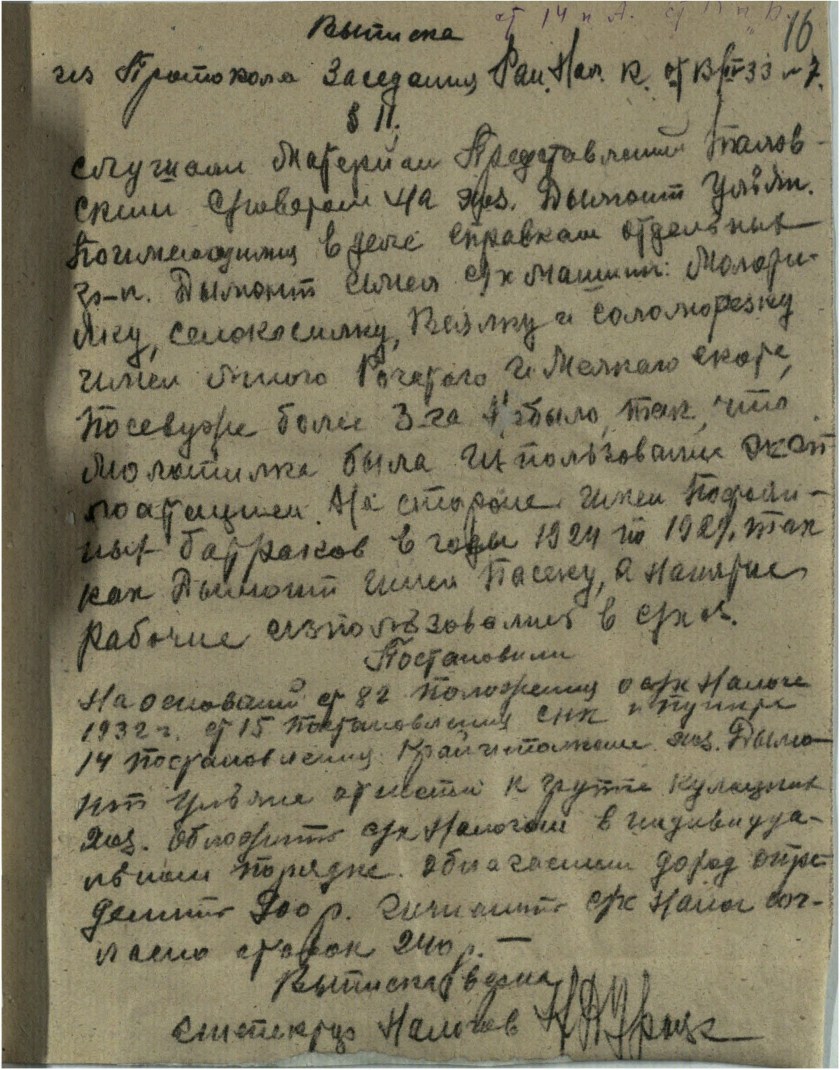 16
Выписка
из Протокола Заседания Рай. Нал. К. от
§ 11.
слушали Материал Представлений Талов-
ским С/советом На хоз. Дымонт Ульян.
По имеющимся в деле справкам отдельных
Дымонт имел с/х машин: Молоти-
лку, сенокосилку, Веялку и Соломорезку
имел много Рогатого и Мелкаго скота,
Посевуже более 3-га было, так, что
Молотилка была использована экс
плоатацией. На стороне имел
ных батраков в годы 1924 по так
как Дымонт имел Пасеку, а Нанятые
рабочие использовались в с/хоз.
Постановили
На оснований ст 82 Положения о с/х Налоге
1932 г. ст 15 Постановления СНК и пункта
14 постановления Крайисполкома хоз. Дымо-
нт Ульяна отнести к группе кулацких
хоз. Обложить с/х Налогом в индивидуа-
льном порядке. облагаемый доход опре-
делить р. с/х Налог сог-
ласно ставок 240 р. —
Выписка верна
Налогов